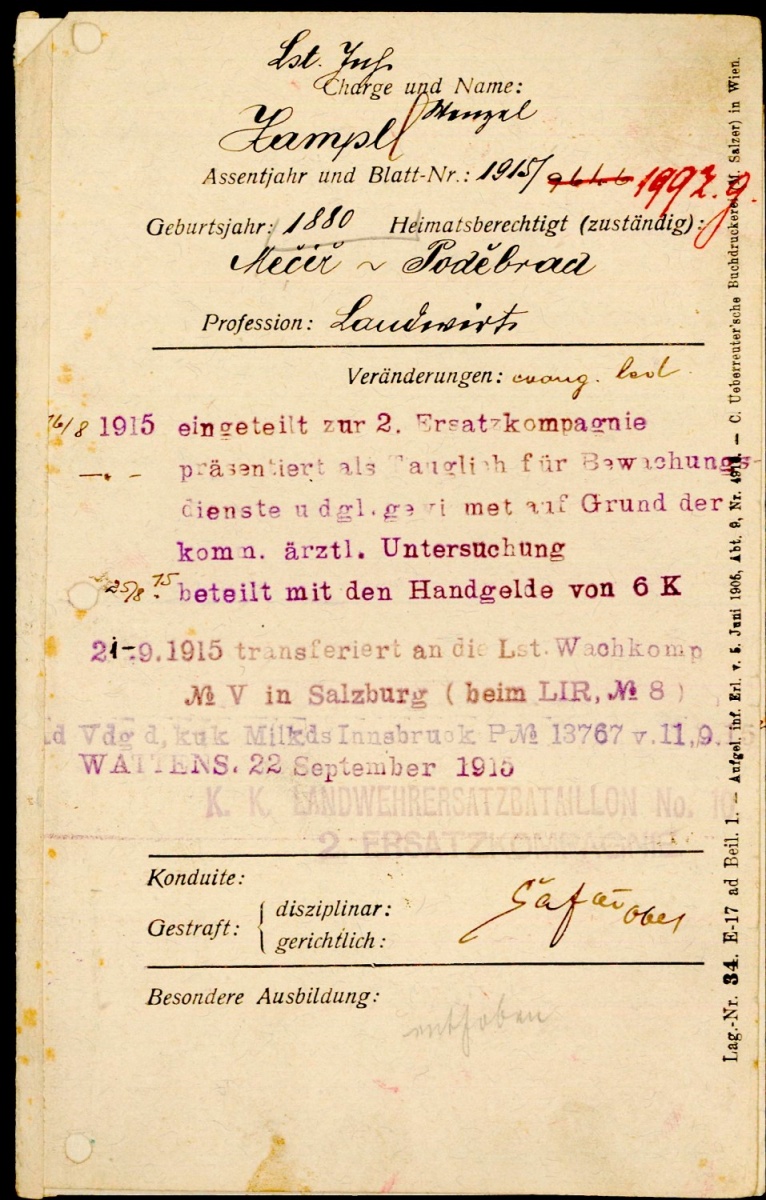 Lst. Inf.
Charge und Name:
Hampl Wenzel
Assentjahr und Blatt-Nr.: 1915/ 1992. g.
Geburtsjahr: 1880 Heimatsberechtigt (zuständig):
Mečíř ~ Poděbrad
Profession: Landwirt
Veränderungen: evang. led.
16/8 1915 eingeteilt zur 2. Ersatzkompagnie
—.- präsentiert als Tauglich für Bewachungs-
dienste u dgl. gewidmet auf Grund der
komn. ärztl. Untersuchung
25/8 15. beteilt mit den Handgelde von 6 K
21-9.1915 transferiert an die Lst. Wachkomp
№ V in Salzburg ( beim LIR, № 8 )
Vdg d, kuk Milkds Innsbruck P№ 13767 v.11,9.15
WATTENS. 22 September 1915
K. K. LANDWEHRERSATZBATAILLON No. 10
2. ERSATZKOMPAGNIE
Konduite:
Gestraft: { disziplinar:
gerichtlich:
Šafař Oblt
Besondere Ausbildung:
enthoben
Lag.-Nr. 34. E-17 ad Beil. 1. — Aufgel. inf. Erl. v. 5. Juni 1906, Abt. 9, Nr. — C. Ueberreuter'sche Buchdruckerei (M. Salzer) in Wien.